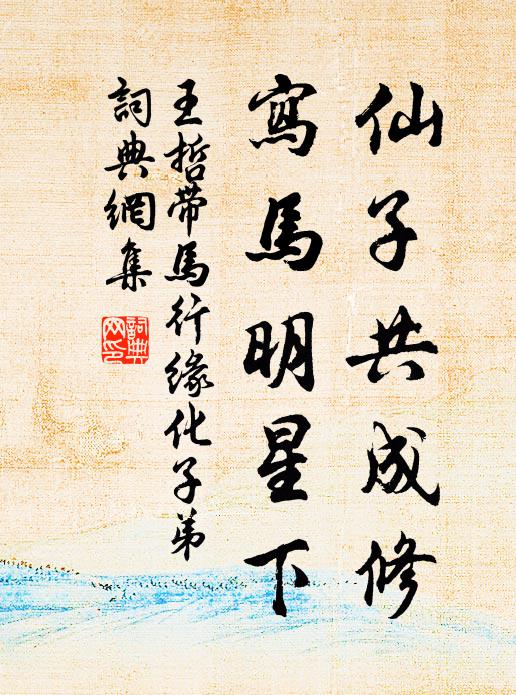 仙子共成修
寫馬明星下
王哲带馬行缘化子弟
詞典網集
詞典网印